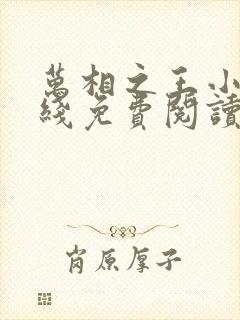 萬相之王小
綫免費閱讀
肖原厚子